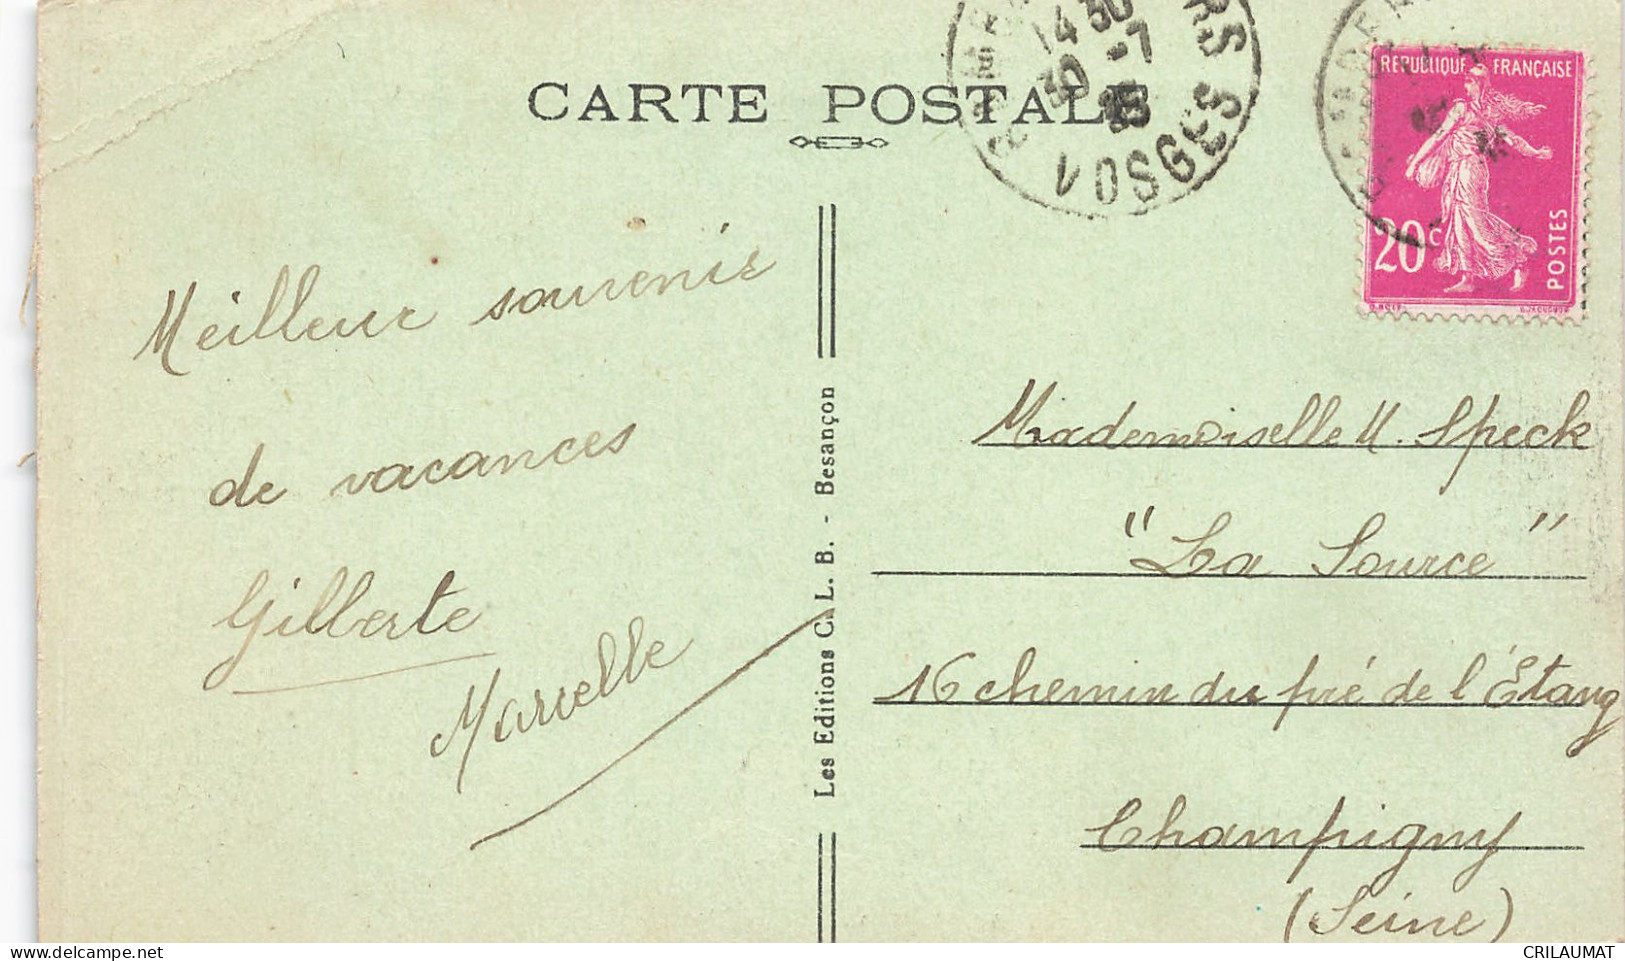 CARTE POSTALE
14 30
30 -7
VOSGES
RÉPUBLIQUE FRANÇAISE
20c
POSTES
Meilleur souvenir
de vacances
Gilberte
Marcelle
Les Editions C. L. B. - Besançon
Mademoiselle M. Speck
"La Source"
16 chemin du pré de l'Étang
Champigny
(Seine)
CRILAUMAT